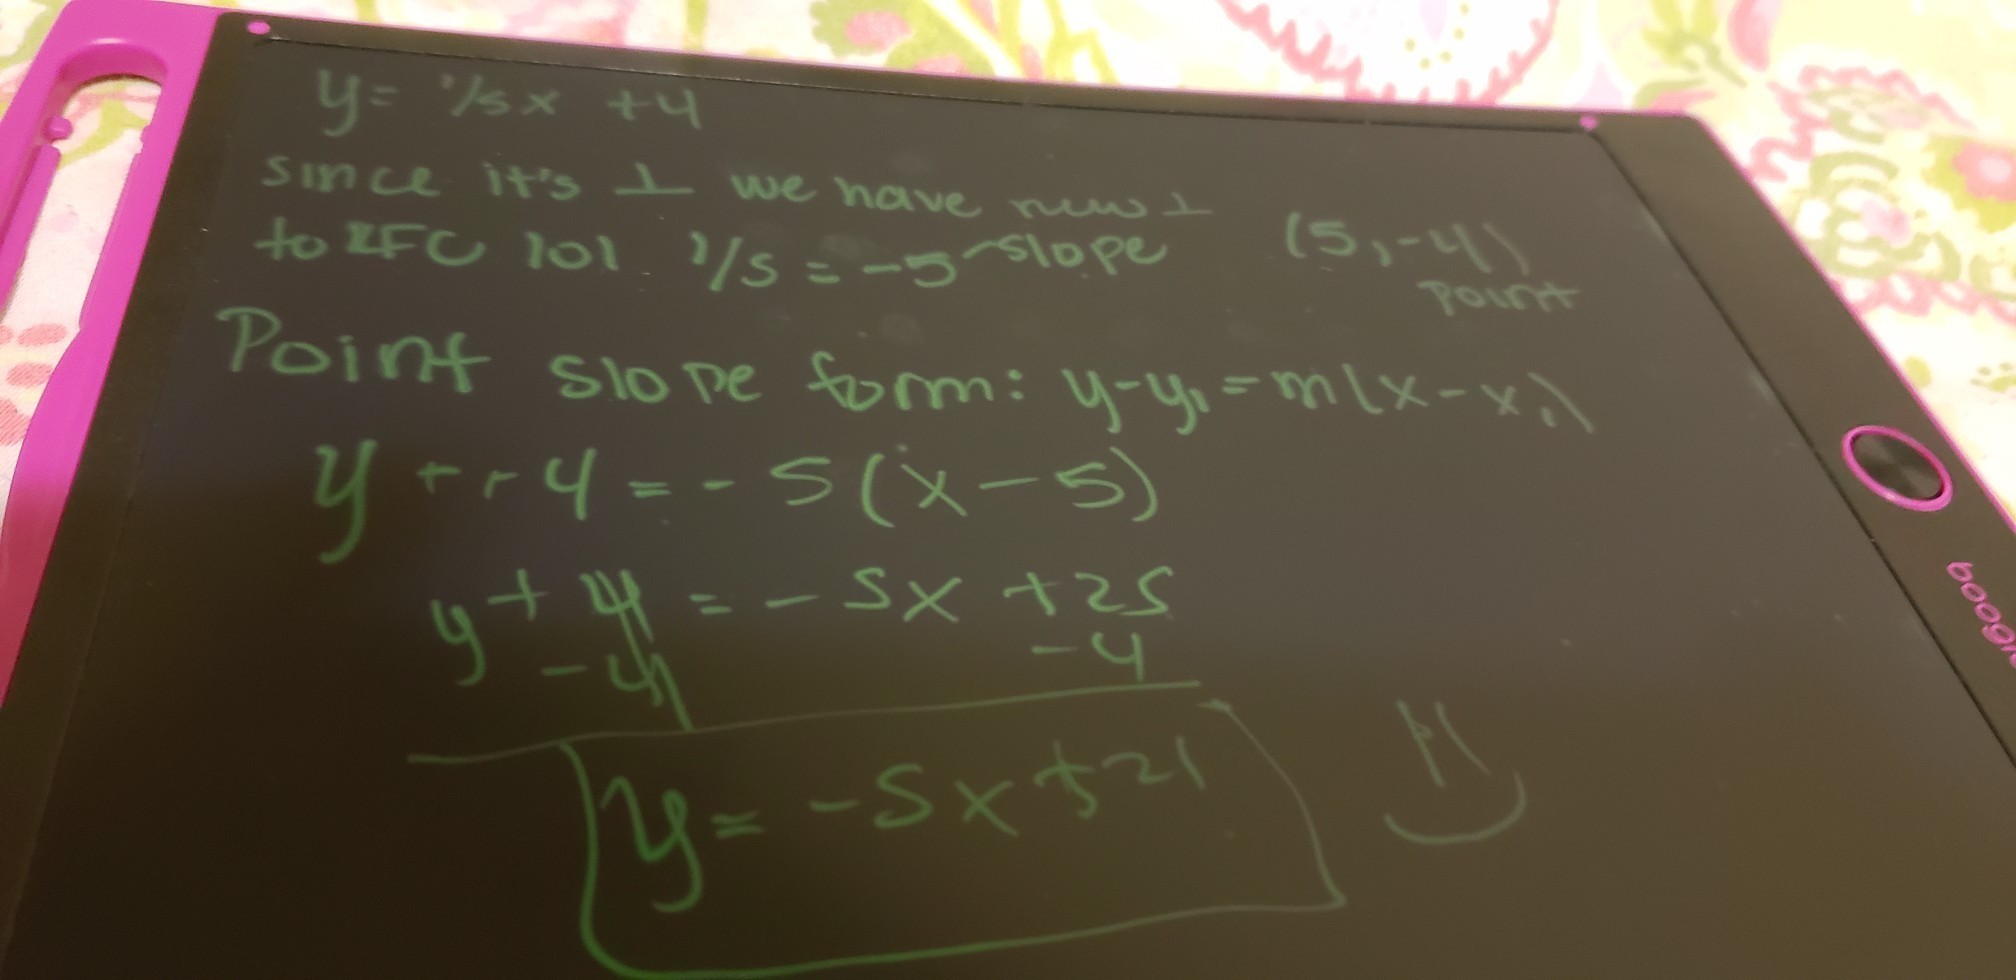 y= 1/5x +4
since it's ⊥ we have new ⊥
to 101 1/5 = -5 slope (5,-4)
point
Point slope form: y-y₁=m(x-x₁)
y + + 4 = -5(x-5)
y + 4 = -5x +25
-4 -4
y= -5x+21
boogi